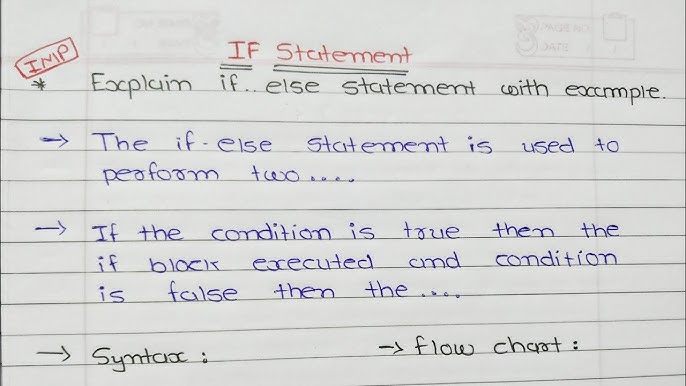 IF Statement
IMP
* Explain if.. else statement with example.
→ The if-else statement is used to
perform two....
→ If the condition is true then the
if block executed and condition
is false then the....
→ Syntax : → flow chart :